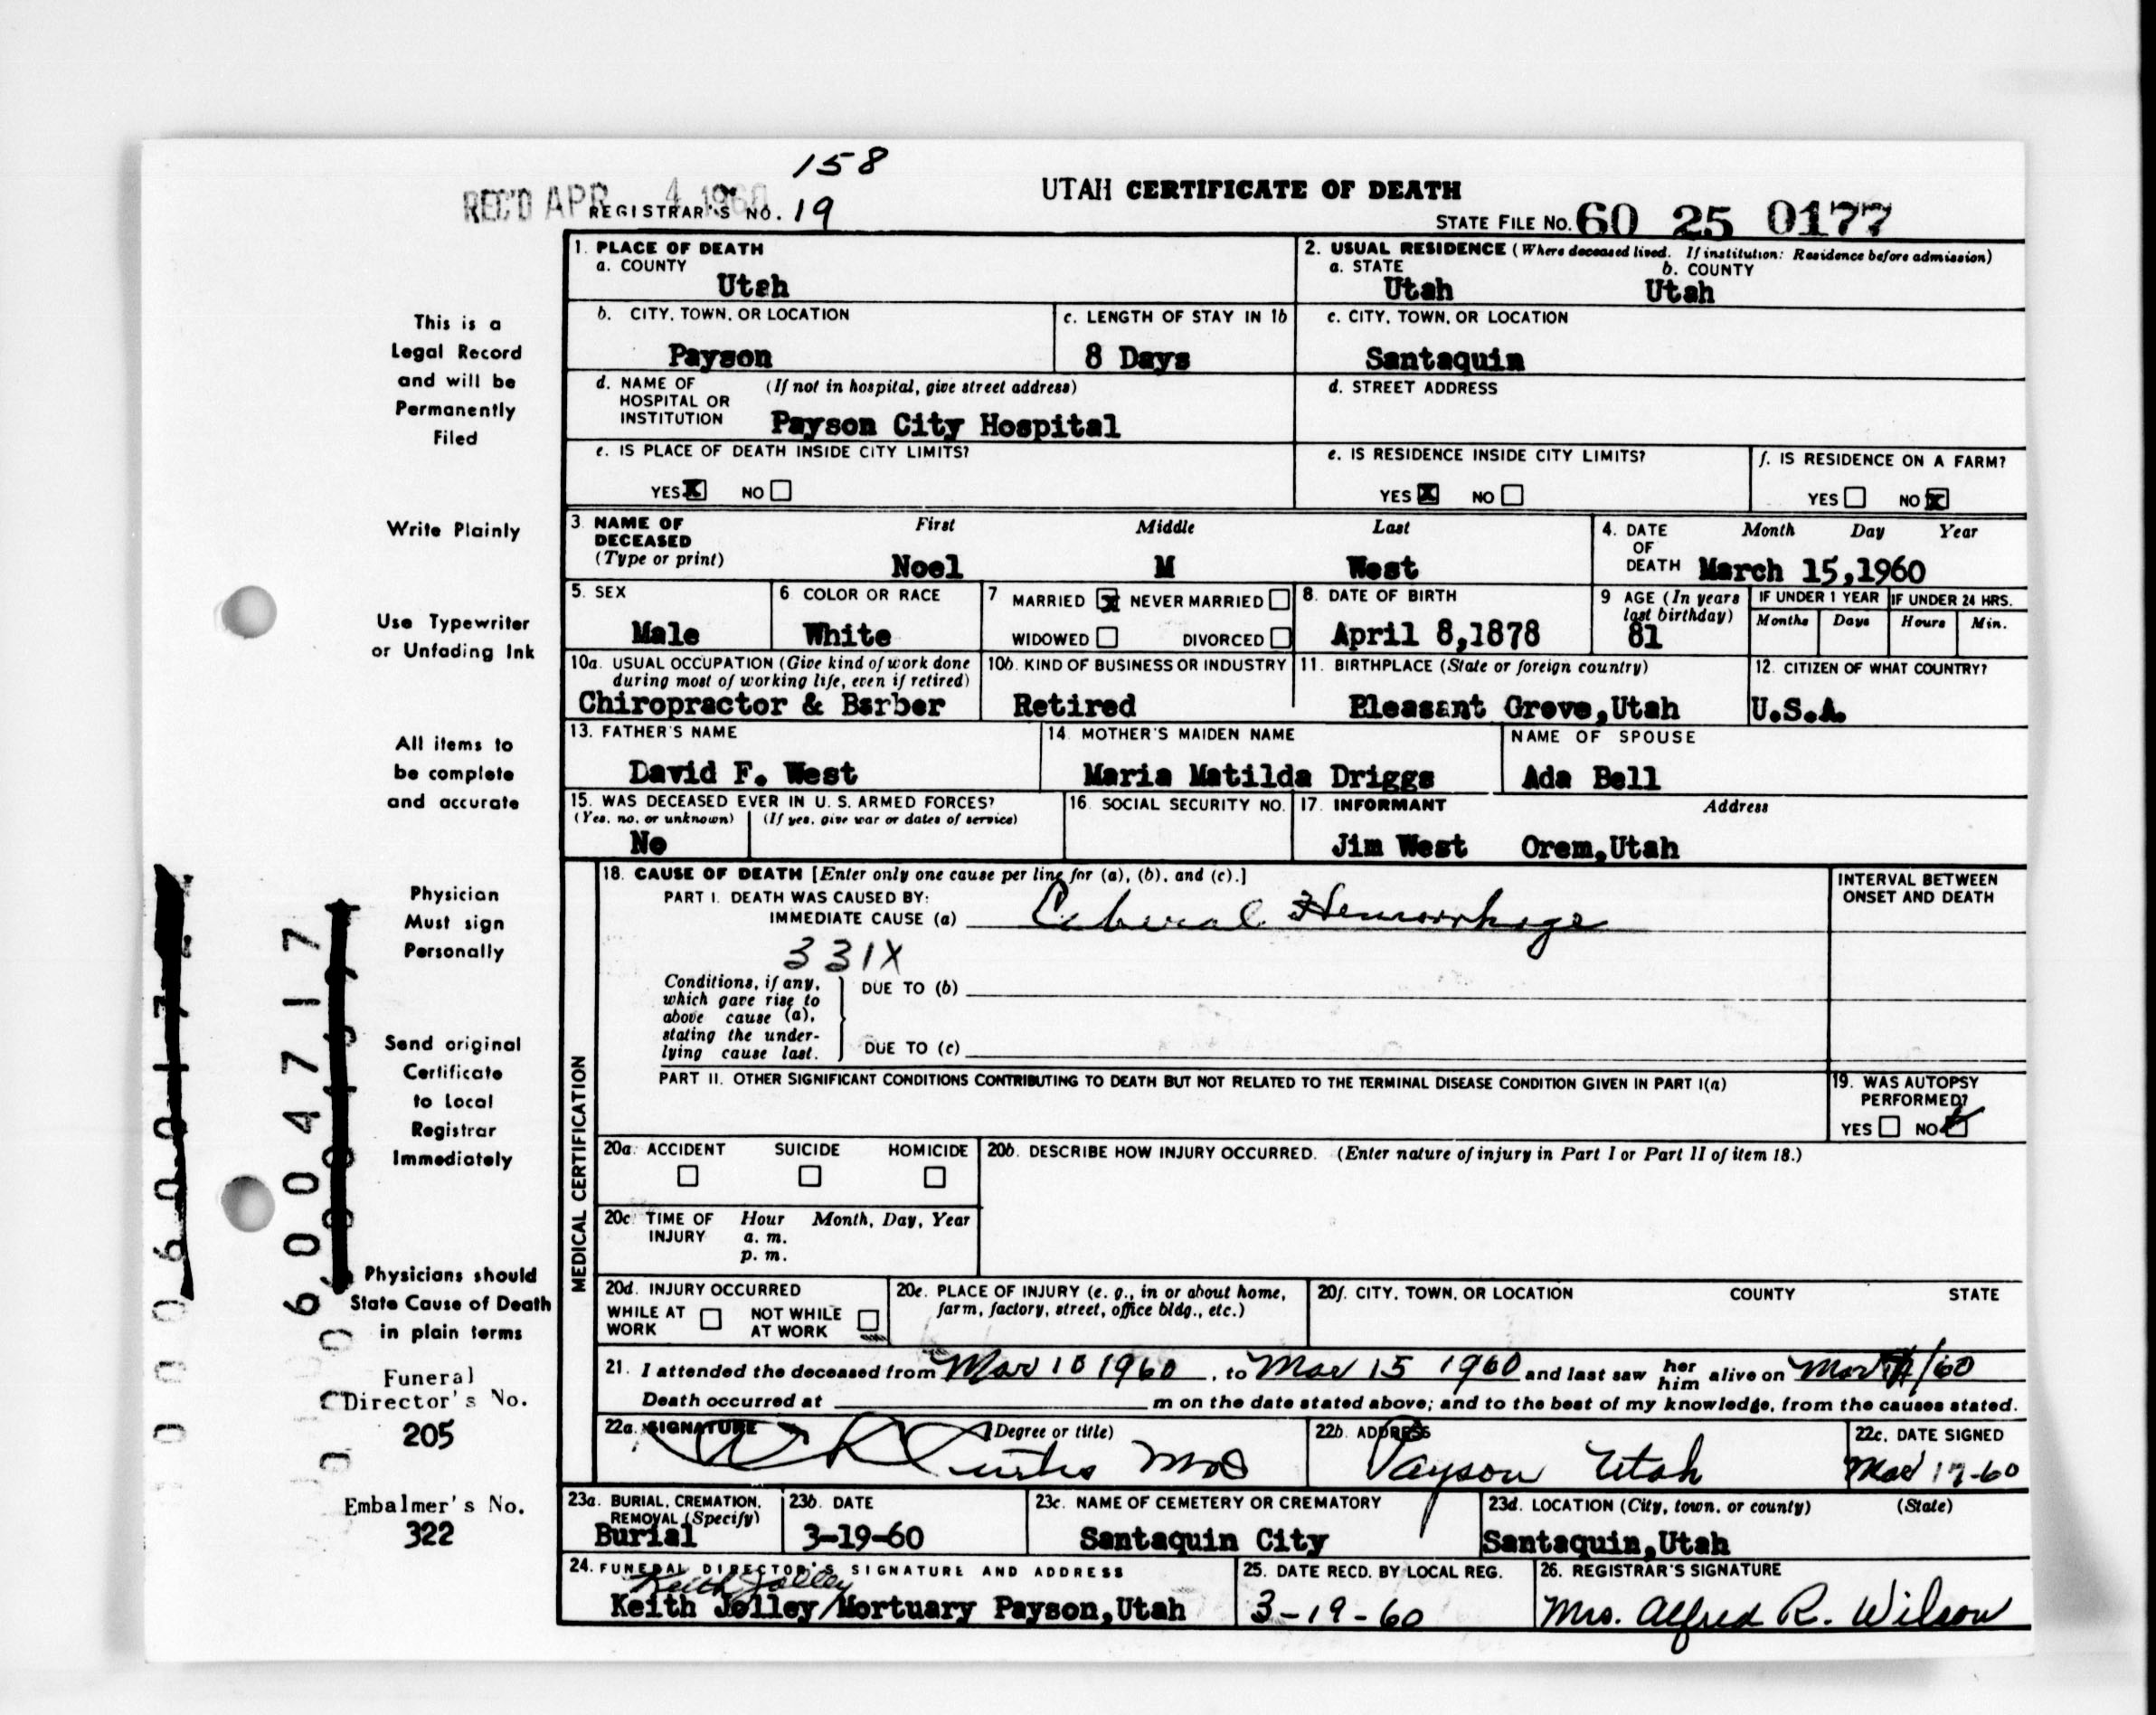 158
REC'D APR 4 1960
REGISTRAR'S NO. 19
UTAH CERTIFICATE OF DEATH
STATE FILE NO. 60 25 0177
1. PLACE OF DEATH
a. COUNTY
Utah
2. USUAL RESIDENCE (Where deceased lived. If institution: Residence before admission)
a. STATE b. COUNTY
Utah Utah
b. CITY, TOWN, OR LOCATION
Payson
c. LENGTH OF STAY IN 1b
8 Days
c. CITY, TOWN, OR LOCATION
Santaquin
d. NAME OF HOSPITAL OR INSTITUTION (If not in hospital, give street address)
Payson City Hospital
d. STREET ADDRESS
e. IS PLACE OF DEATH INSIDE CITY LIMITS?
YES X NO
e. IS RESIDENCE INSIDE CITY LIMITS?
YES X NO
f. IS RESIDENCE ON A FARM?
YES NO X
3. NAME OF DECEASED (Type or print)
First Middle Last
Noel M West
4. DATE OF DEATH Month Day Year
March 15,1960
5. SEX
Male
6 COLOR OR RACE
White
7 MARRIED X NEVER MARRIED
WIDOWED DIVORCED
8. DATE OF BIRTH
April 8,1878
9 AGE (In years last birthday)
81
IF UNDER 1 YEAR IF UNDER 24 HRS.
Months Days Hours Min.
10a. USUAL OCCUPATION (Give kind of work done during most of working life, even if retired)
Chiropractor & Barber
10b. KIND OF BUSINESS OR INDUSTRY
Retired
11. BIRTHPLACE (State or foreign country)
Pleasant Grove,Utah
12. CITIZEN OF WHAT COUNTRY?
U.S.A.
13. FATHER'S NAME
David F. West
14. MOTHER'S MAIDEN NAME
Maria Matilda Driggs
NAME OF SPOUSE
Ada Bell
15. WAS DECEASED EVER IN U. S. ARMED FORCES?
(Yes, no, or unknown) (If yes, give war or dates of service)
No
16. SOCIAL SECURITY NO.
17. INFORMANT Address
Jim West Orem,Utah
MEDICAL CERTIFICATION
18. CAUSE OF DEATH [Enter only one cause per line for (a), (b), and (c).]
PART I. DEATH WAS CAUSED BY:
IMMEDIATE CAUSE (a) Ceberal Hemorrhage
331X
INTERVAL BETWEEN ONSET AND DEATH
Conditions, if any, which gave rise to above cause (a), stating the underlying cause last.
DUE TO (b)
DUE TO (c)
PART II. OTHER SIGNIFICANT CONDITIONS CONTRIBUTING TO DEATH BUT NOT RELATED TO THE TERMINAL DISEASE CONDITION GIVEN IN PART I(a)
19. WAS AUTOPSY PERFORMED?
YES NO
20a. ACCIDENT SUICIDE HOMICIDE
20b. DESCRIBE HOW INJURY OCCURRED. (Enter nature of injury in Part I or Part II of item 18.)
20c. TIME OF INJURY Hour Month, Day, Year
a. m.
p. m.
20d. INJURY OCCURRED
WHILE AT WORK NOT WHILE AT WORK
20e. PLACE OF INJURY (e. g., in or about home, farm, factory, street, office bldg., etc.)
20f. CITY, TOWN, OR LOCATION COUNTY STATE
21. I attended the deceased from Mar 10 1960, to Mar 15 1960 and last saw her him alive on Mar /60
Death occurred at m on the date stated above; and to the best of my knowledge, from the causes stated.
22a. SIGNATURE (Degree or title)
Curtis MD
22b. ADDRESS
Payson Utah
22c. DATE SIGNED
Mar 17-60
23a. BURIAL, CREMATION, REMOVAL (Specify)
Burial
23b. DATE
3-19-60
23c. NAME OF CEMETERY OR CREMATORY
Santaquin City
23d. LOCATION (City, town, or county) (State)
Santaquin,Utah
24. FUNERAL DIRECTOR'S SIGNATURE AND ADDRESS
Keith Jolley
Keith Jolley Mortuary Payson,Utah
25. DATE RECD. BY LOCAL REG.
3-19-60
26. REGISTRAR'S SIGNATURE
Mrs. Alfred R. Wilson
This is a
Legal Record
and will be
Permanently
Filed
Write Plainly
Use Typewriter
or Unfading Ink
All items to
be complete
and accurate
Physician
Must sign
Personally
Send original
Certificate
to Local
Registrar
Immediately
Physicians should
State Cause of Death
in plain terms
Funeral
Director's No.
205
Embalmer's No.
322
60047717